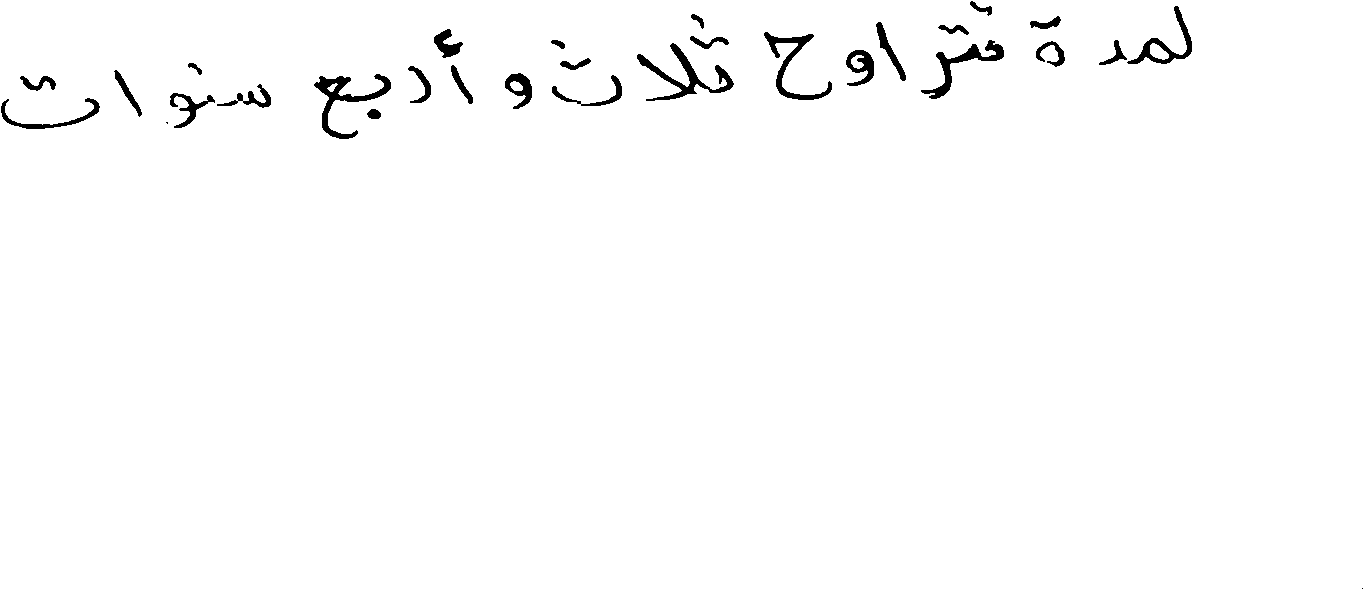 لمدة تتراوح ثلاث و أربع سنوات